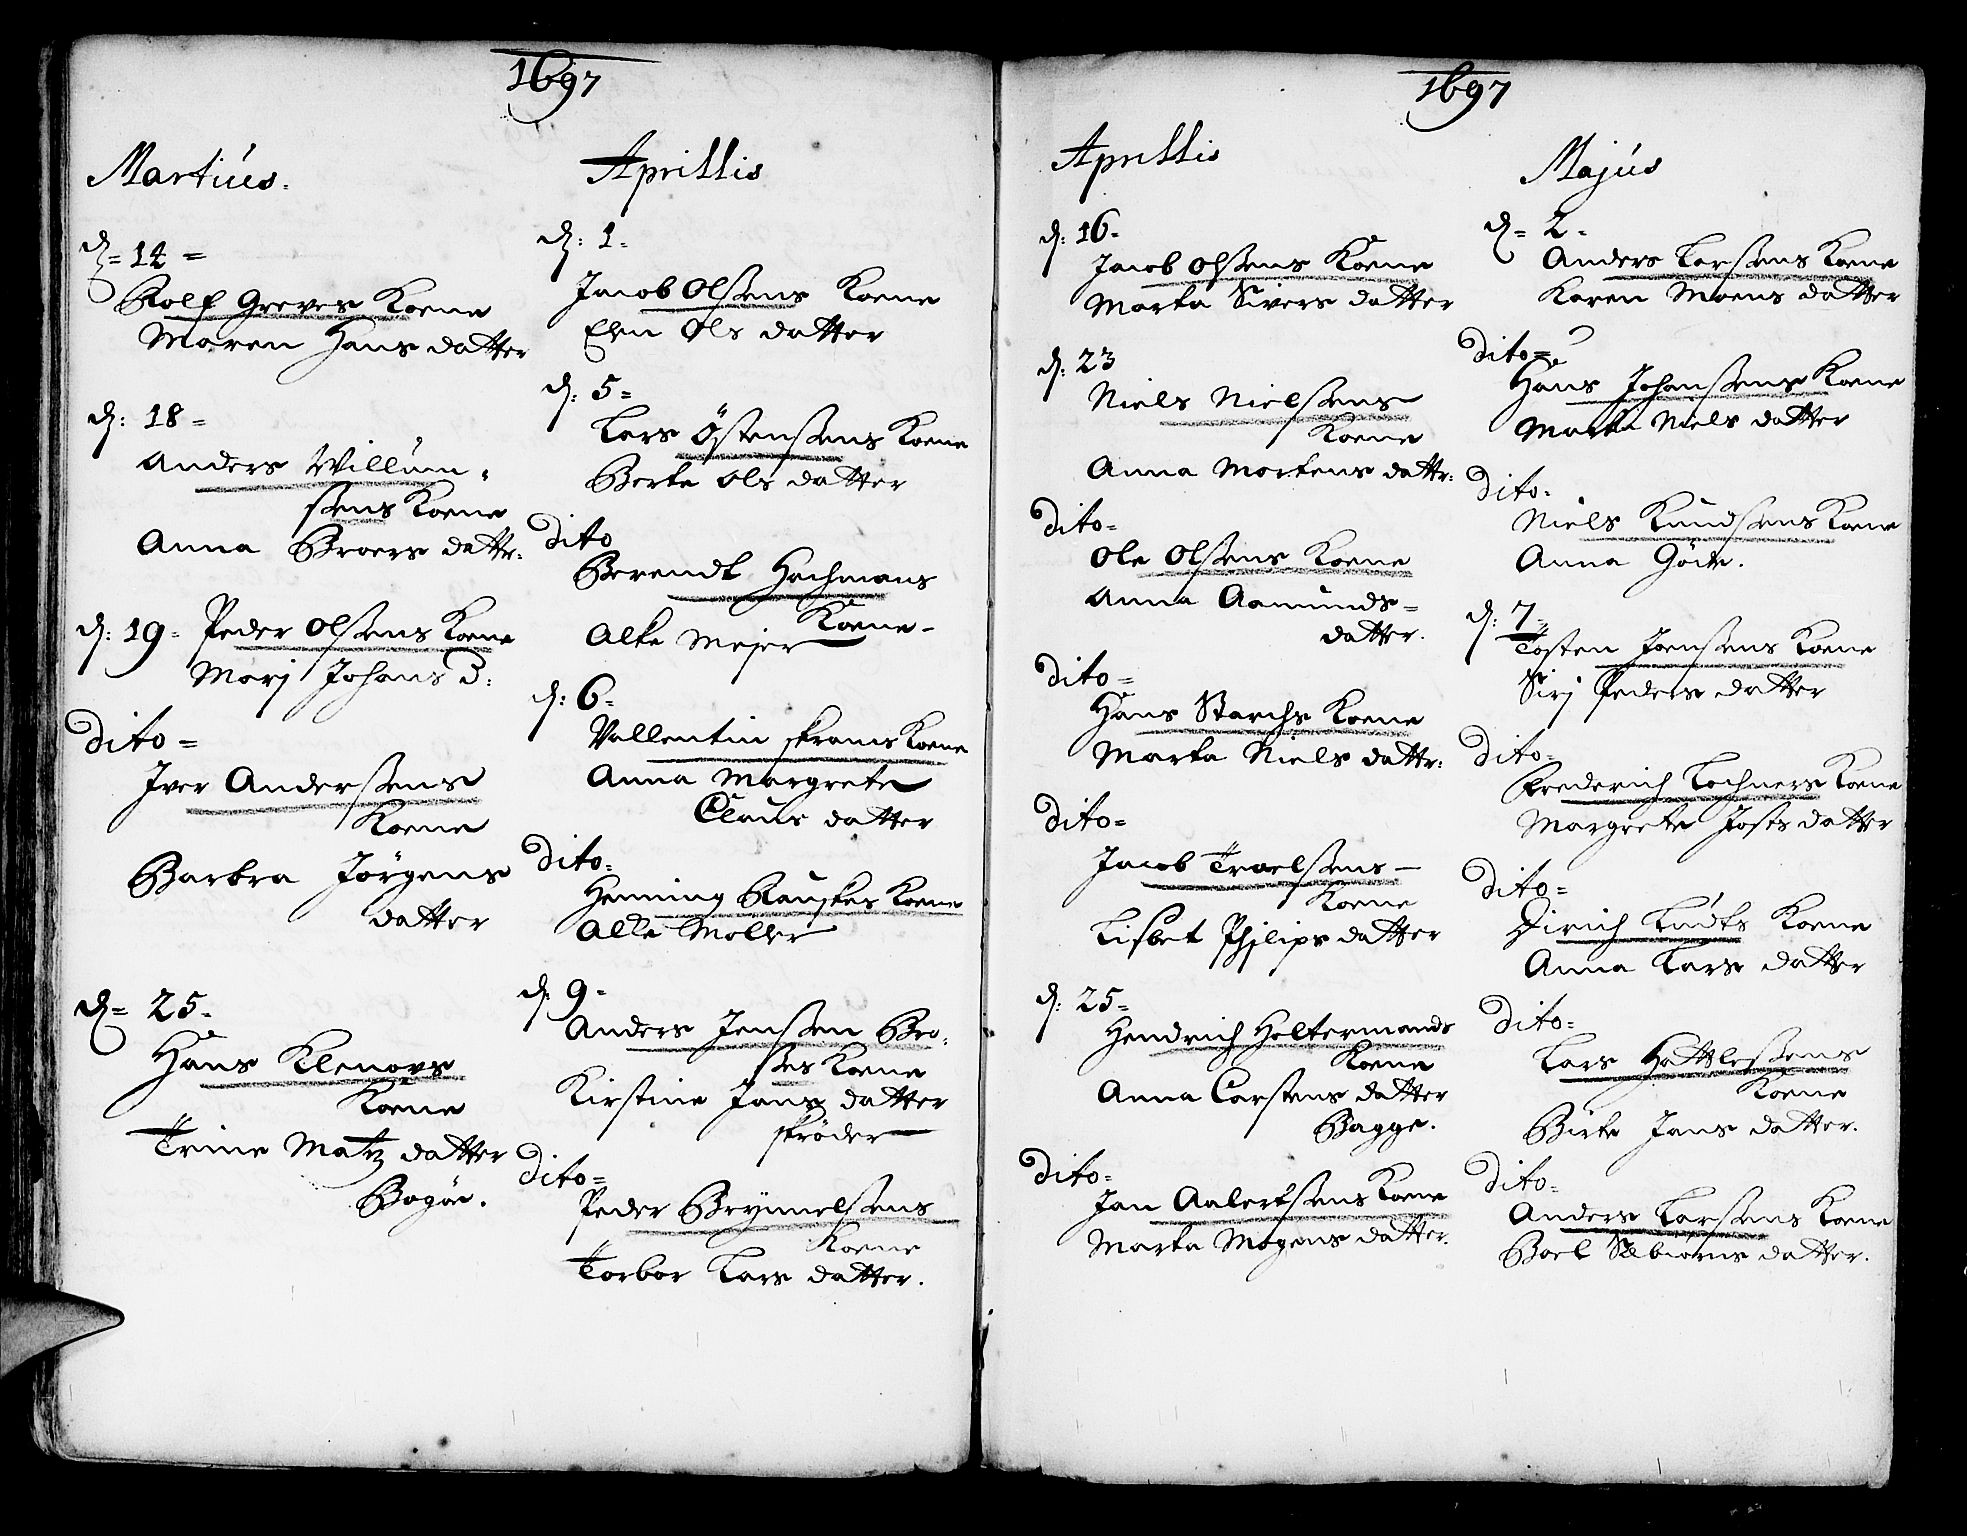 1697
Martius.
d= 14 =
Rolf Greves Koene
Maren Hans datter
d: 18 =
Anders Willum=
sens Koene
Anna Broers dattr:
d: 19 = Peder Olsens Koene
Marj Johans D:
Dito =
Iver Andersens
Koene
Barbra Jörgens
datter
d= 25.
Hans Klenovs
Koene
Trine Matz datter
Bagöe.
Aprillis
d: 1.
Jacob Olsens Koene
Elen Ols datter
d: 5=
Lars Östensens Koene
Berte Ols datter
Dito
Berendt Hachmans
Koene
Alke Mejer
d: 6=
Vallentin skrams Koene
Anna Margrete
Claus datter
Dito=
Henning Rauskes Koene
Alke Moller
d: 9=
Anders Jenssen Bro=
ses Koene
Kirstine Jans datter
skröder
Dito=
Peder Brynnelsens
Koene
Torbor Lars datter.
1697
Aprillis
d: 16=
Jacob Olsens Koene
Marta Sivers datter
d: 23
Niels Nielsens
Koene
Anna Mortens dattr:
Dito=
Ole Olsens Koene
Anna Aamunds=
datter.
Dito=
Hans Starchs Koene
Marta Niels dattr:
Dito=
Jacob Traelsens
Koene
Lisbet Philips datter
d: 25=
Hendrich Holtermands
Koene
Anna Carstens datter
Bagge.
Dito=
Jan Aalertsens Koene
Marta Mogens datter.
Majus
d= 2=
Anders Larsens Koene
Karen Moens datter
Dito=
Hans Johansens Koene
Marta Niels datter
Dito=
Niels Knudsens Koene
Anna Göite.
d: 7=
Tosten Joensens Koene
Sirj Peders datter
Dito=
Frederich Lochners Koene
Margrete Josts datter
Dito=
Dirich Ludts Koene
Anna Lars datter
Dito=
Lars Hattlesens
Koene
Birte Jans datter.
Dito=
Anders Larsens Koene
Boel Sæbiorns datter.